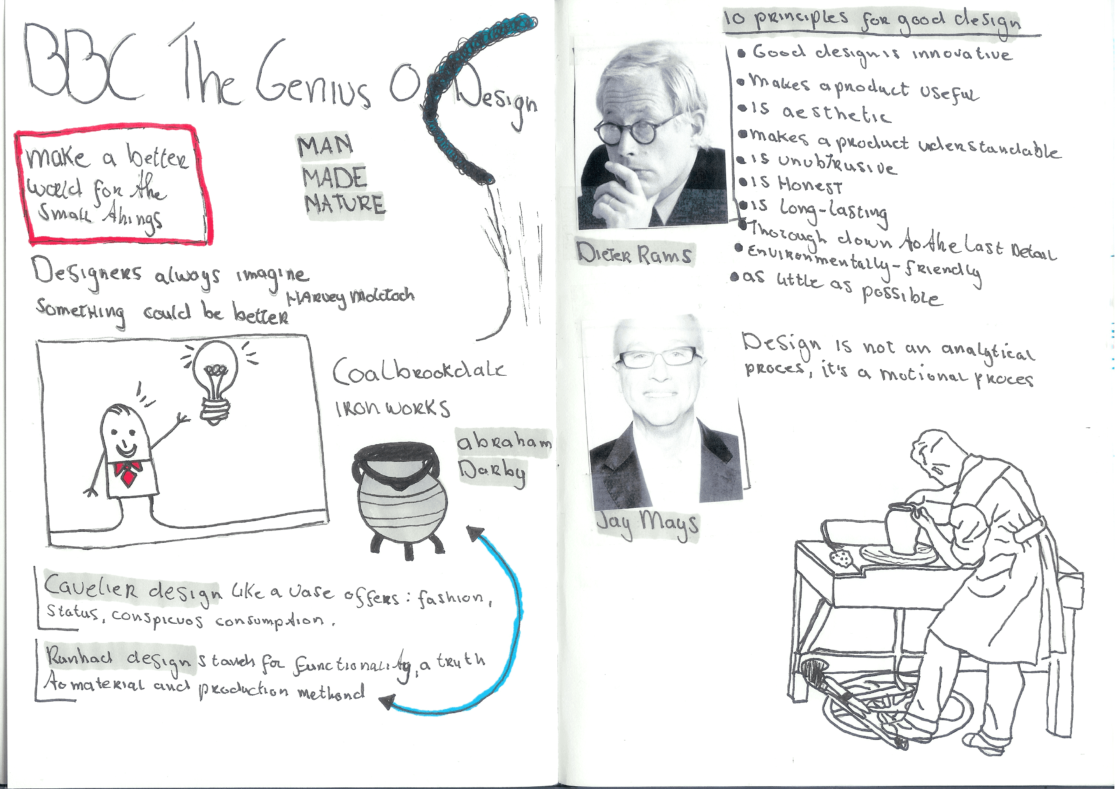 BBC The Genius Of Design
make a better
world for the
small things
MAN
MADE
NATURE
Designers always imagine
something could be better
Harvey Molotoch
Coalbrookdale
IRON WORKS
abraham
Darby
Cavelier design like a vase offers: fashion,
status, conspicuos consumption.
Runhad design stands for functionality, a truth
to material and production methond
10 principles for good design
Good design is innovative
makes a product useful
is aesthetic
makes a product understandable
is unubtrusive
is Honest
is long-lasting
Thorough down to the last Detail
Environmentally-friendly
as little as possible
Dieter Rams
Design is not an analytical
proces, it's a motional proces
Jay Mays